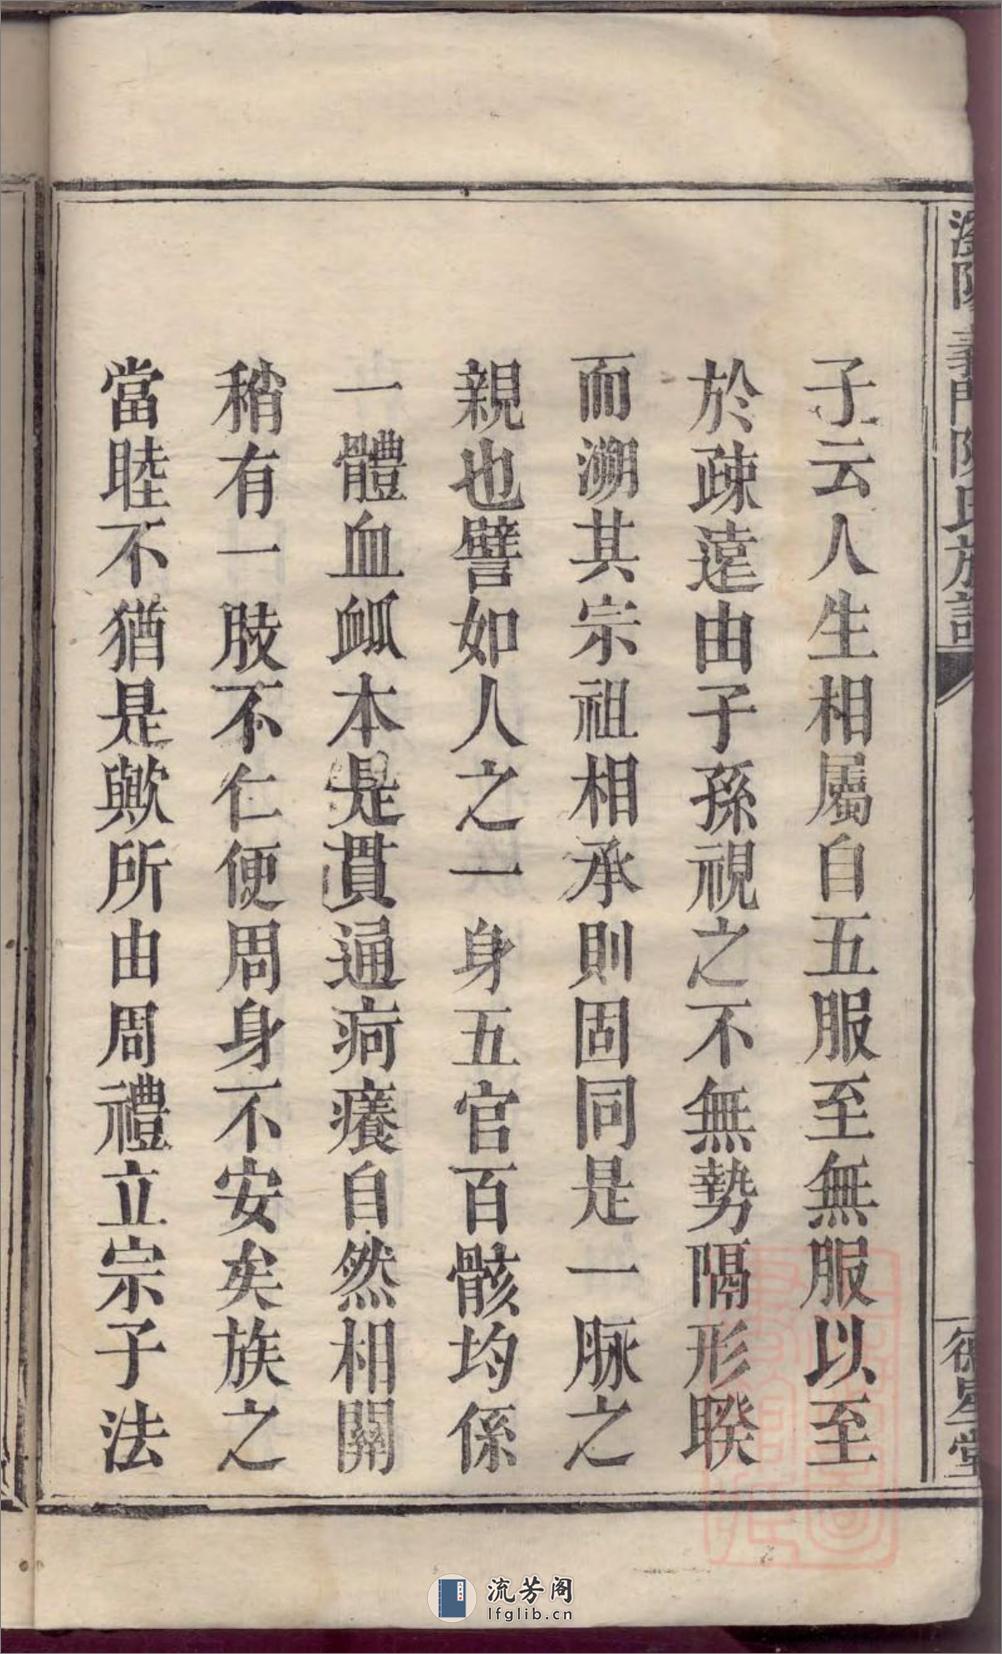 義門陳氏族譜
德星堂
子云人生相屬自五服至無服以至
於疎遠由子孫視之不無勢隔形睽
而溯其宗祖相承則固同是一脉之
親也譬如人之一身五官百骸均係
一體血衇本是貫通疴癢自然相關
稍有一肢不仁便周身不安矣族之
當睦不猶是歟所由周禮立宗子法
流芳阁
lfglib.cn